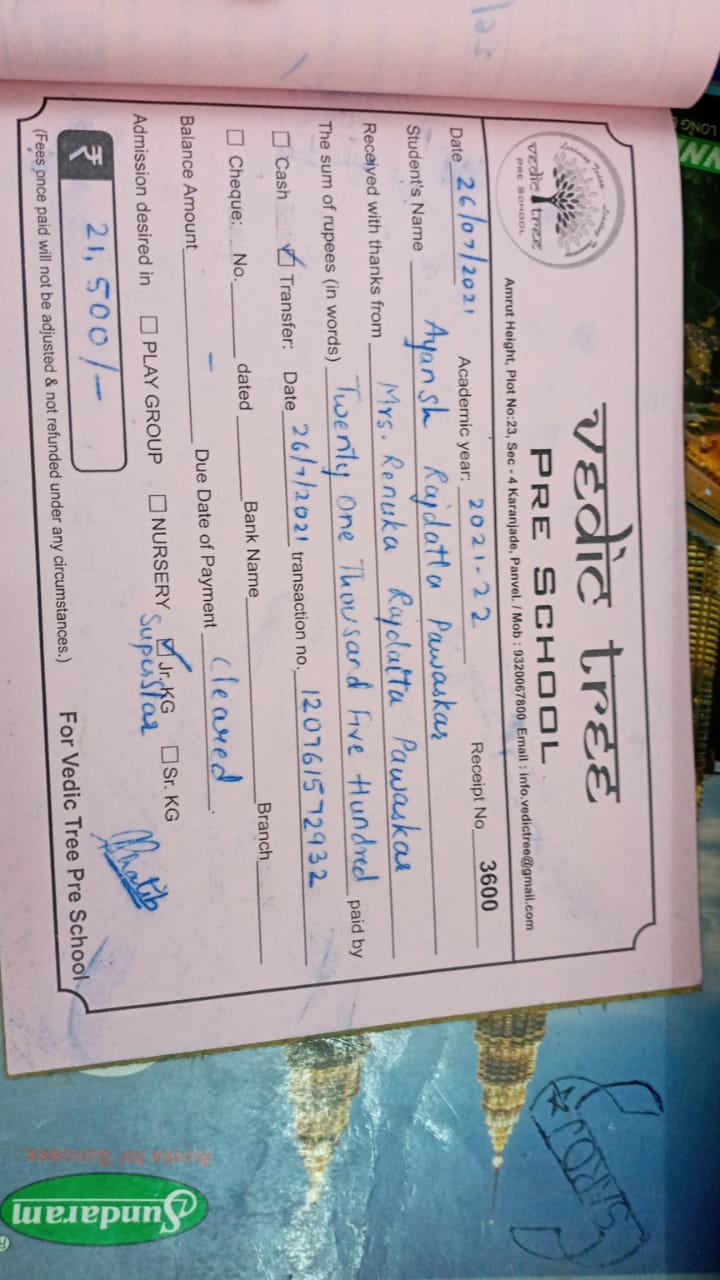 vedic tree
PRE SCHOOL
vedic tree
PRE SCHOOL
Amrut Height, Plot No:23, Sec - 4 Karanjade, Panvel. / Mob : 9320067800 Email : info.vedictree@gmail.com
Date 26/07/2021 Academic year: 2021-22 Receipt No 3600
Student's Name Ayansh Rajdatta Pawaskar
Received with thanks from Mrs. Renuka Rajdatta Pawaskar
The sum of rupees (in words) Twenty one Thousand Five Hundred paid by
Cash Transfer: Date 26/7/2021 transaction no. 120761572932
Cheque: No. dated Bank Name Branch
Balance Amount - Due Date of Payment cleared.
Admission desired in PLAY GROUP NURSERY Jr. KG Sr. KG
Superstar
₹ 21,500/-
(Fees once paid will not be adjusted & not refunded under any circumstances.) For Vedic Tree Pre School
Books for Success...
Sundaram